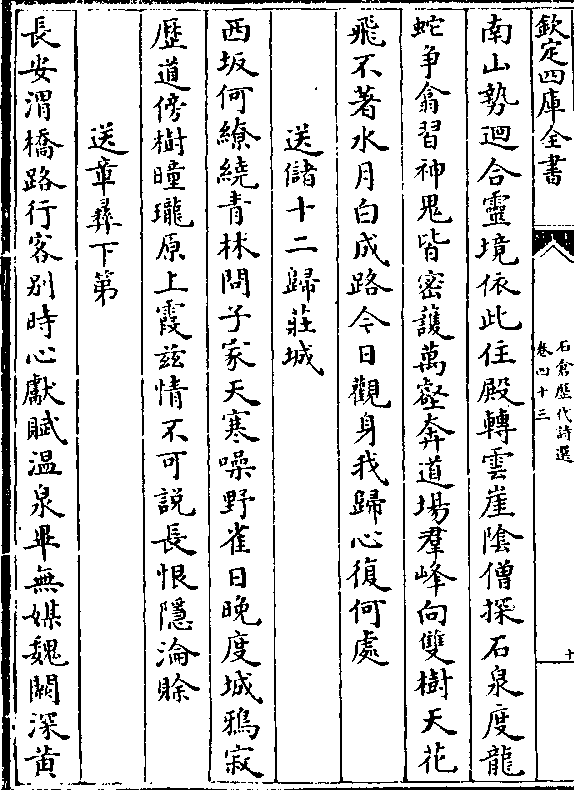 欽定四庫全書
石倉歷代詩選
卷四十三
十
南山勢迴合靈境依此住殿轉雲崖陰僧探石泉度龍
蛇爭翕習神鬼皆密護萬壑奔道場羣峰向雙樹天花
飛不著水月白成路今日觀身我歸心復何處
送儲十二歸莊城
西坂何繚繞青林問子家天寒噪野雀日晚度城鴉寂
歴道傍樹曈曨原上霞兹情不可說長恨隱淪賖
送章彛下第
長安渭橋路行客别時心獻賦温泉畢無媒魏闕深黄